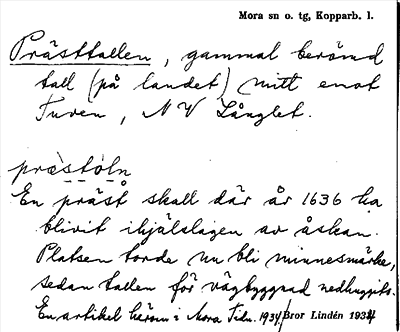 Mora sn o. tg, Kopparb. l.
Prästtallen, gammal berömd
tall (på landet) mitt emot
Turen, NV Långlet.
præstóln
En präst skall där år 1636 ha
blivit ihjälslagen av åskan.
Platsen torde nu bli minnesmärke,
sedan tallen för vägbyggnad nedhuggits.
En artikel härom i Mora Tidn. 1934/Bror Lindén 1934